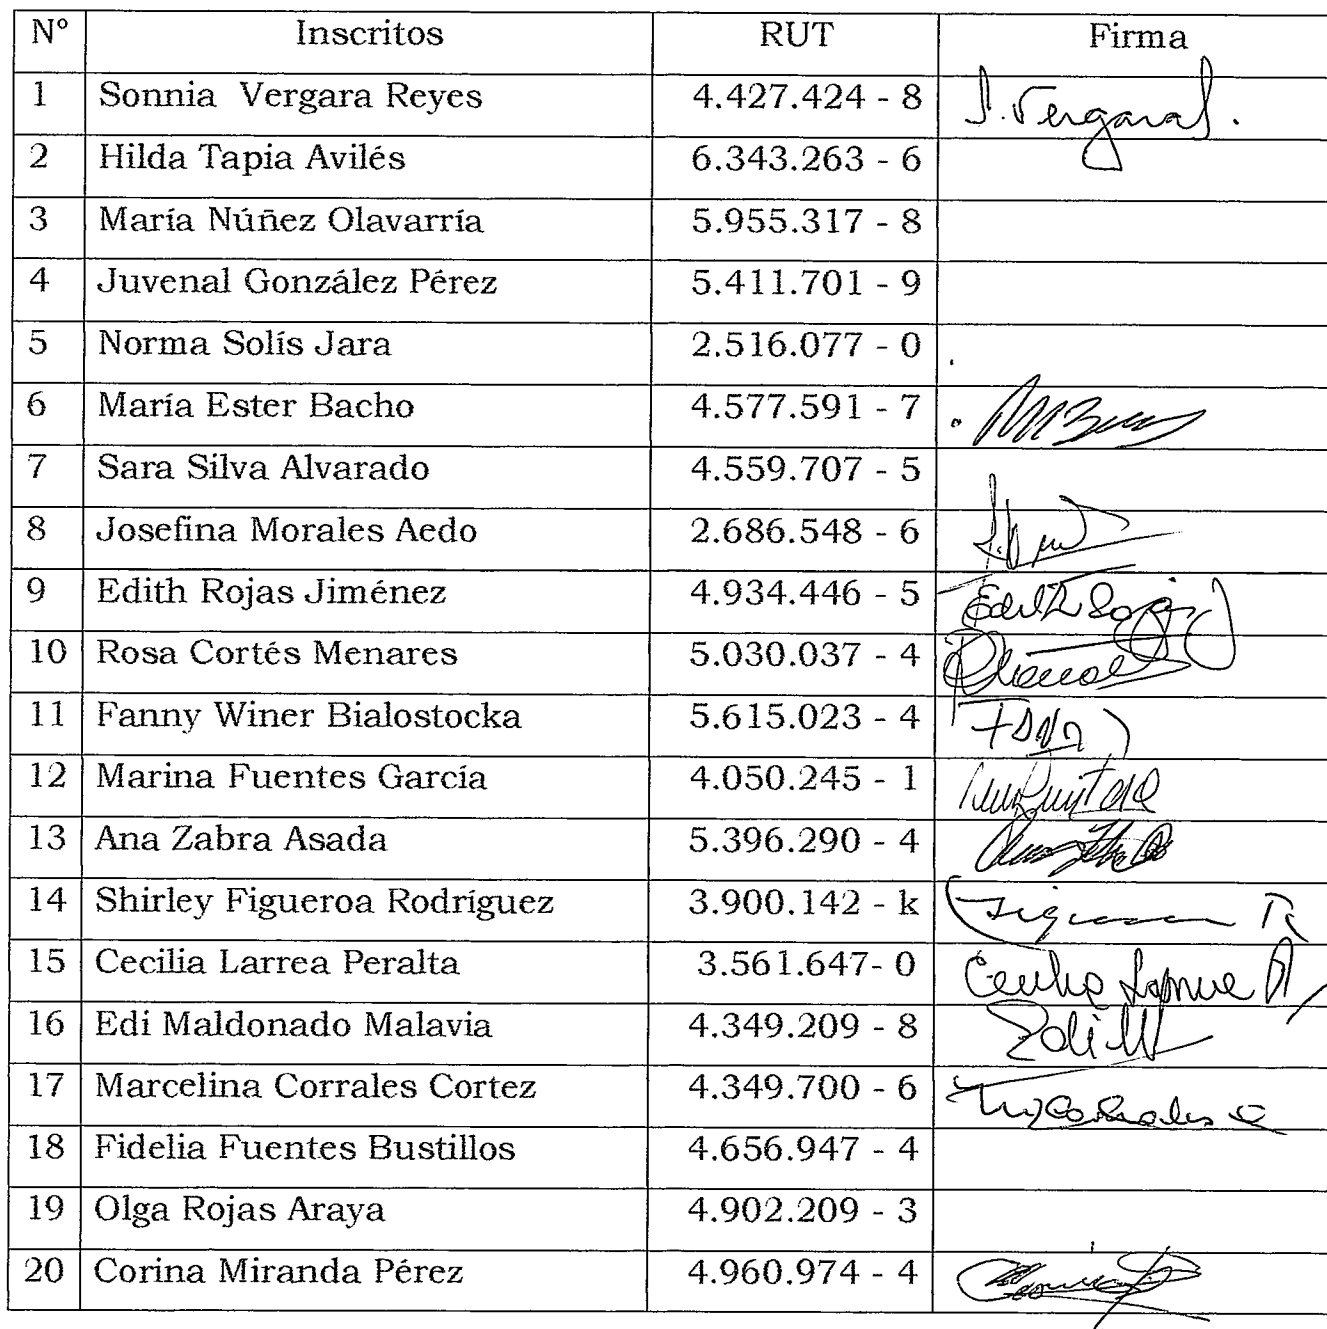 Nº Inscritos RUT Firma
1 Sonnia Vergara Reyes 4.427.424 - 8 S. Vergara
2 Hilda Tapia Avilés 6.343.263 - 6
3 María Núñez Olavarría 5.955.317 - 8
4 Juvenal González Pérez 5.411.701 - 9
5 Norma Solís Jara 2.516.077 - 0
6 María Ester Bacho 4.577.591 - 7
7 Sara Silva Alvarado 4.559.707 - 5
8 Josefina Morales Aedo 2.686.548 - 6
9 Edith Rojas Jiménez 4.934.446 - 5 Edith Rojas J
10 Rosa Cortés Menares 5.030.037 - 4
11 Fanny Winer Bialostocka 5.615.023 - 4
12 Marina Fuentes García 4.050.245 - 1
13 Ana Zabra Asada 5.396.290 - 4
14 Shirley Figueroa Rodríguez 3.900.142 - k
15 Cecilia Larrea Peralta 3.561.647- 0
16 Edi Maldonado Malavia 4.349.209 - 8 Edi M
17 Marcelina Corrales Cortez 4.349.700 - 6
18 Fidelia Fuentes Bustillos 4.656.947 - 4
19 Olga Rojas Araya 4.902.209 - 3
20 Corina Miranda Pérez 4.960.974 - 4